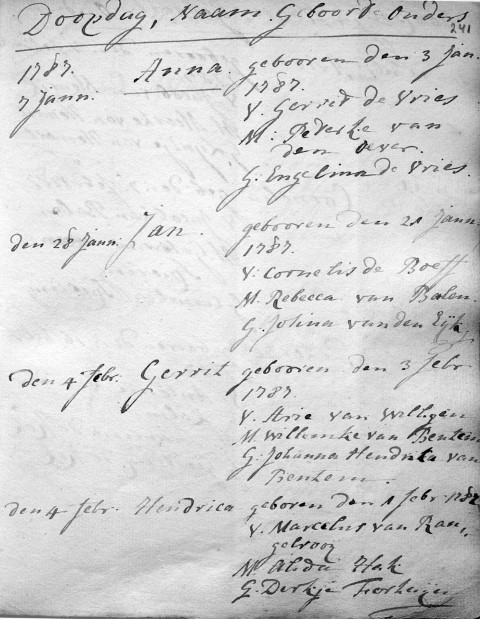 Doopdag, Naam. Geboorte Ouders
241
1787. Anna. gebooren den 3 Jan.
7 Jann. 1787.
V. Gerrit de Vries
M. Peterke van
den Oever.
G. Engelina de Vries.
den 28 Jann. Jan. gebooren den 21 Jann.
1787.
V. Cornelis de Boeff
M. Rebecca van Balen.
G. Jolina van den Eijk
den 4 febr. Gerrit gebooren den 3 febr
1787.
V. Arie van Willigen
M. Willemke van Bentem
G. Johanna Hendrika van
Bentem.
den 4 febr. Hendrica geboren den 1 febr. 1787
V. Marcelus van Ran„
gelrooy
M. Alida Hak
G. Derkje